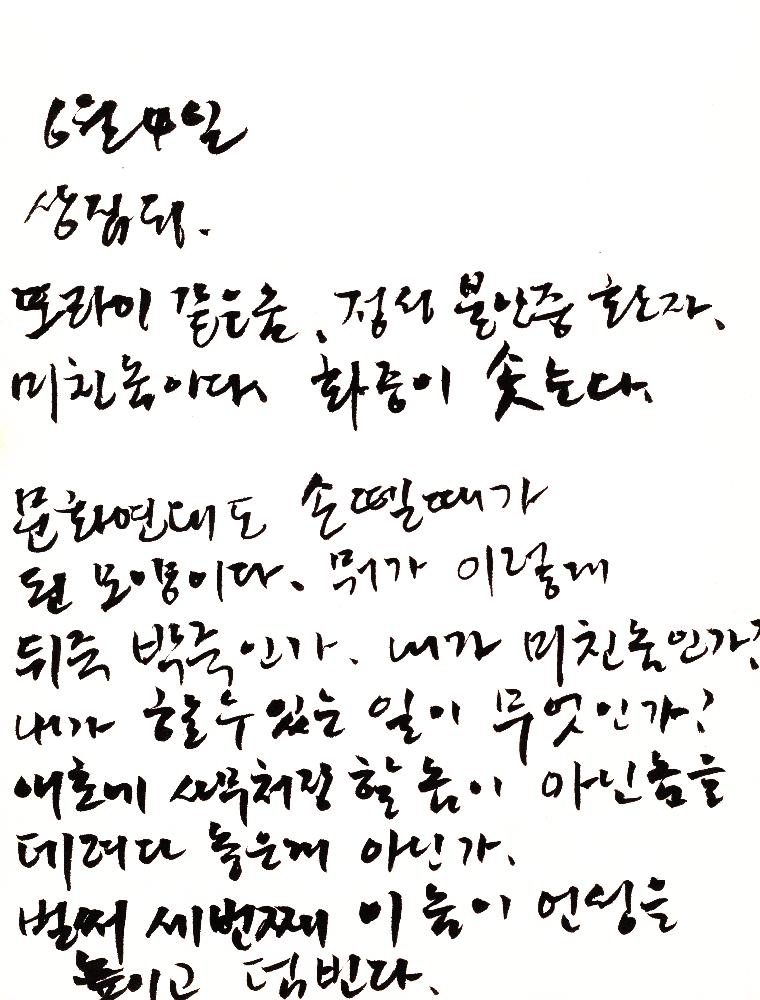 6월 4일
상점뒤.
또라이 같은 놈, 정서 불안증 환자,
미친놈이다. 화증이 솟는다.
문화연대도 손뗄때가
된 모양이다. 뭐가 이렇게
뒤죽 박죽인가. 내가 미친놈인가?
내가 할 수 있는 일이 무엇인가?
애초에 사무처장 할 놈이 아닌놈을
데려다 놓은게 아닌가.
벌써 세번째 이 놈이 언성을
높이고 덤빈다.